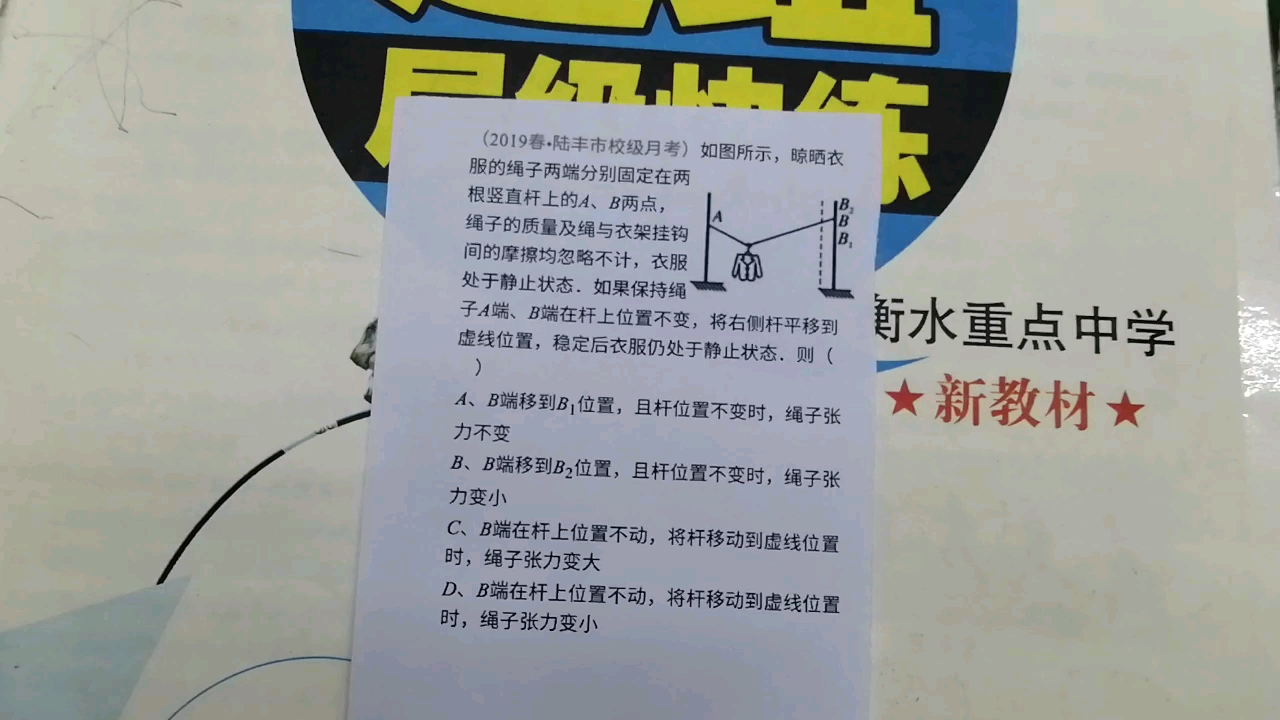 层级快练
（2019春•陆丰市校级月考）如图所示，晾晒衣
服的绳子两端分别固定在两
根竖直杆上的A、B两点，
绳子的质量及绳与衣架挂钩
间的摩擦均忽略不计，衣服
处于静止状态．如果保持绳
子A端、B端在杆上位置不变，将右侧杆平移到
虚线位置，稳定后衣服仍处于静止状态．则（
）
A
B₂
B
B₁
A、B端移到B₁位置，且杆位置不变时，绳子张
力不变
B、B端移到B₂位置，且杆位置不变时，绳子张
力变小
C、B端在杆上位置不动，将杆移动到虚线位置
时，绳子张力变大
D、B端在杆上位置不动，将杆移动到虚线位置
时，绳子张力变小
衡水重点中学
★新教材★